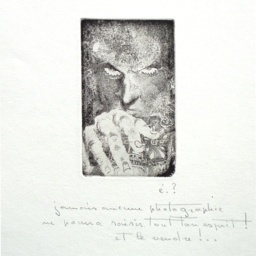 é.?
jamais aucune photographie
ne pourra saisir tout ton esprit !
et le rendre...